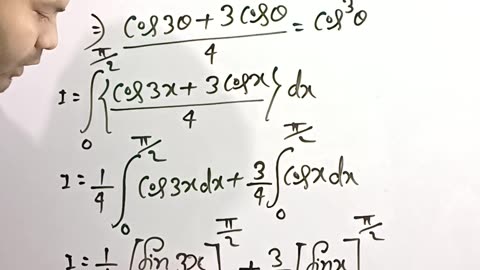 ⇒ (cos3θ + 3cosθ)/4 = cos³θ
I = ∫₀^{π/2} {(cos3x + 3cosx)/4} dx
I = 1/4 ∫₀^{π/2} cos3x dx + 3/4 ∫₀^{π/2} cosx dx
I = 1/ [sin 3x]^{π/2} + 3/ [sinx]^{π/2}